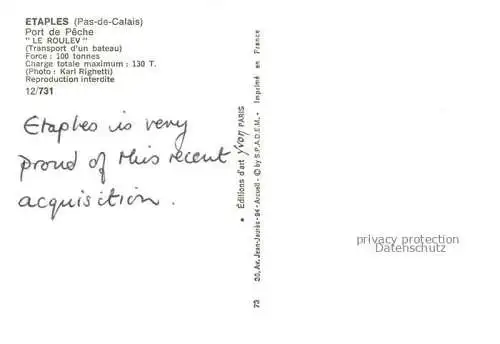 ETAPLES (Pas-de-Calais)
Port de Pêche
" LE ROULEV "
(Transport d'un bateau)
Force : 100 tonnes
Charge totale maximum : 130 T.
(Photo : Karl Righetti)
Reproduction interdite
12/731
Etaples is very
proud of this recent
acquisition.
• Éditions d'art yvon PARIS
73 20, Av. Jean-Jaurès - 94 - Arcueil - © by S.P.A.D.E.M. - Imprimé en France
privacy protection
Datenschutz